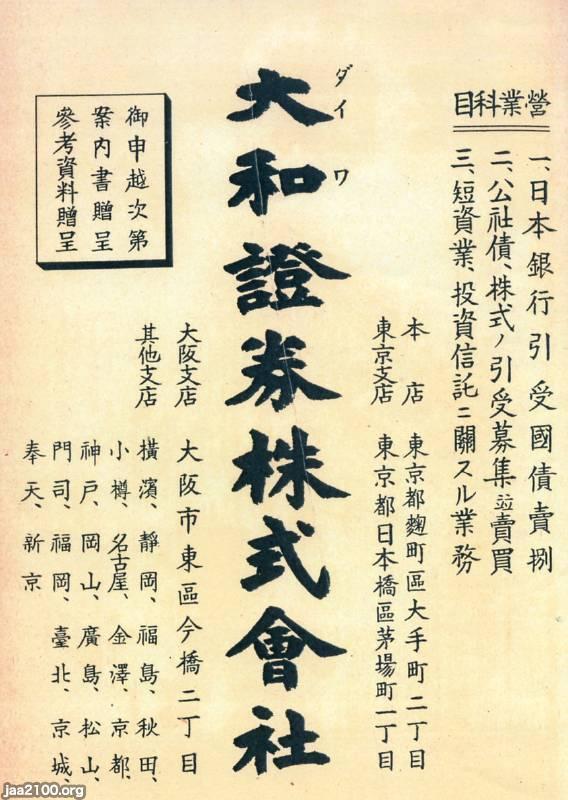 營業科目
一、日本銀行引受國債賣捌
二、公社債、株式ノ引受募集並賣買
三、短資業、投資信託ニ關スル業務
本店 東京都麴町區大手町二丁目
東京支店 東京都日本橋區茅場町一丁目
ダイワ
大和證券株式會社
大阪支店 大阪市東區今橋二丁目
其他支店 橫濱、靜岡、福島、秋田、
小樽、名古屋、金澤、京都、
神戶、岡山、廣島、松山、
門司、福岡、臺北、京城、
奉天、新京
御申越次第
案内書贈呈
參考資料贈呈
jaa2100.org